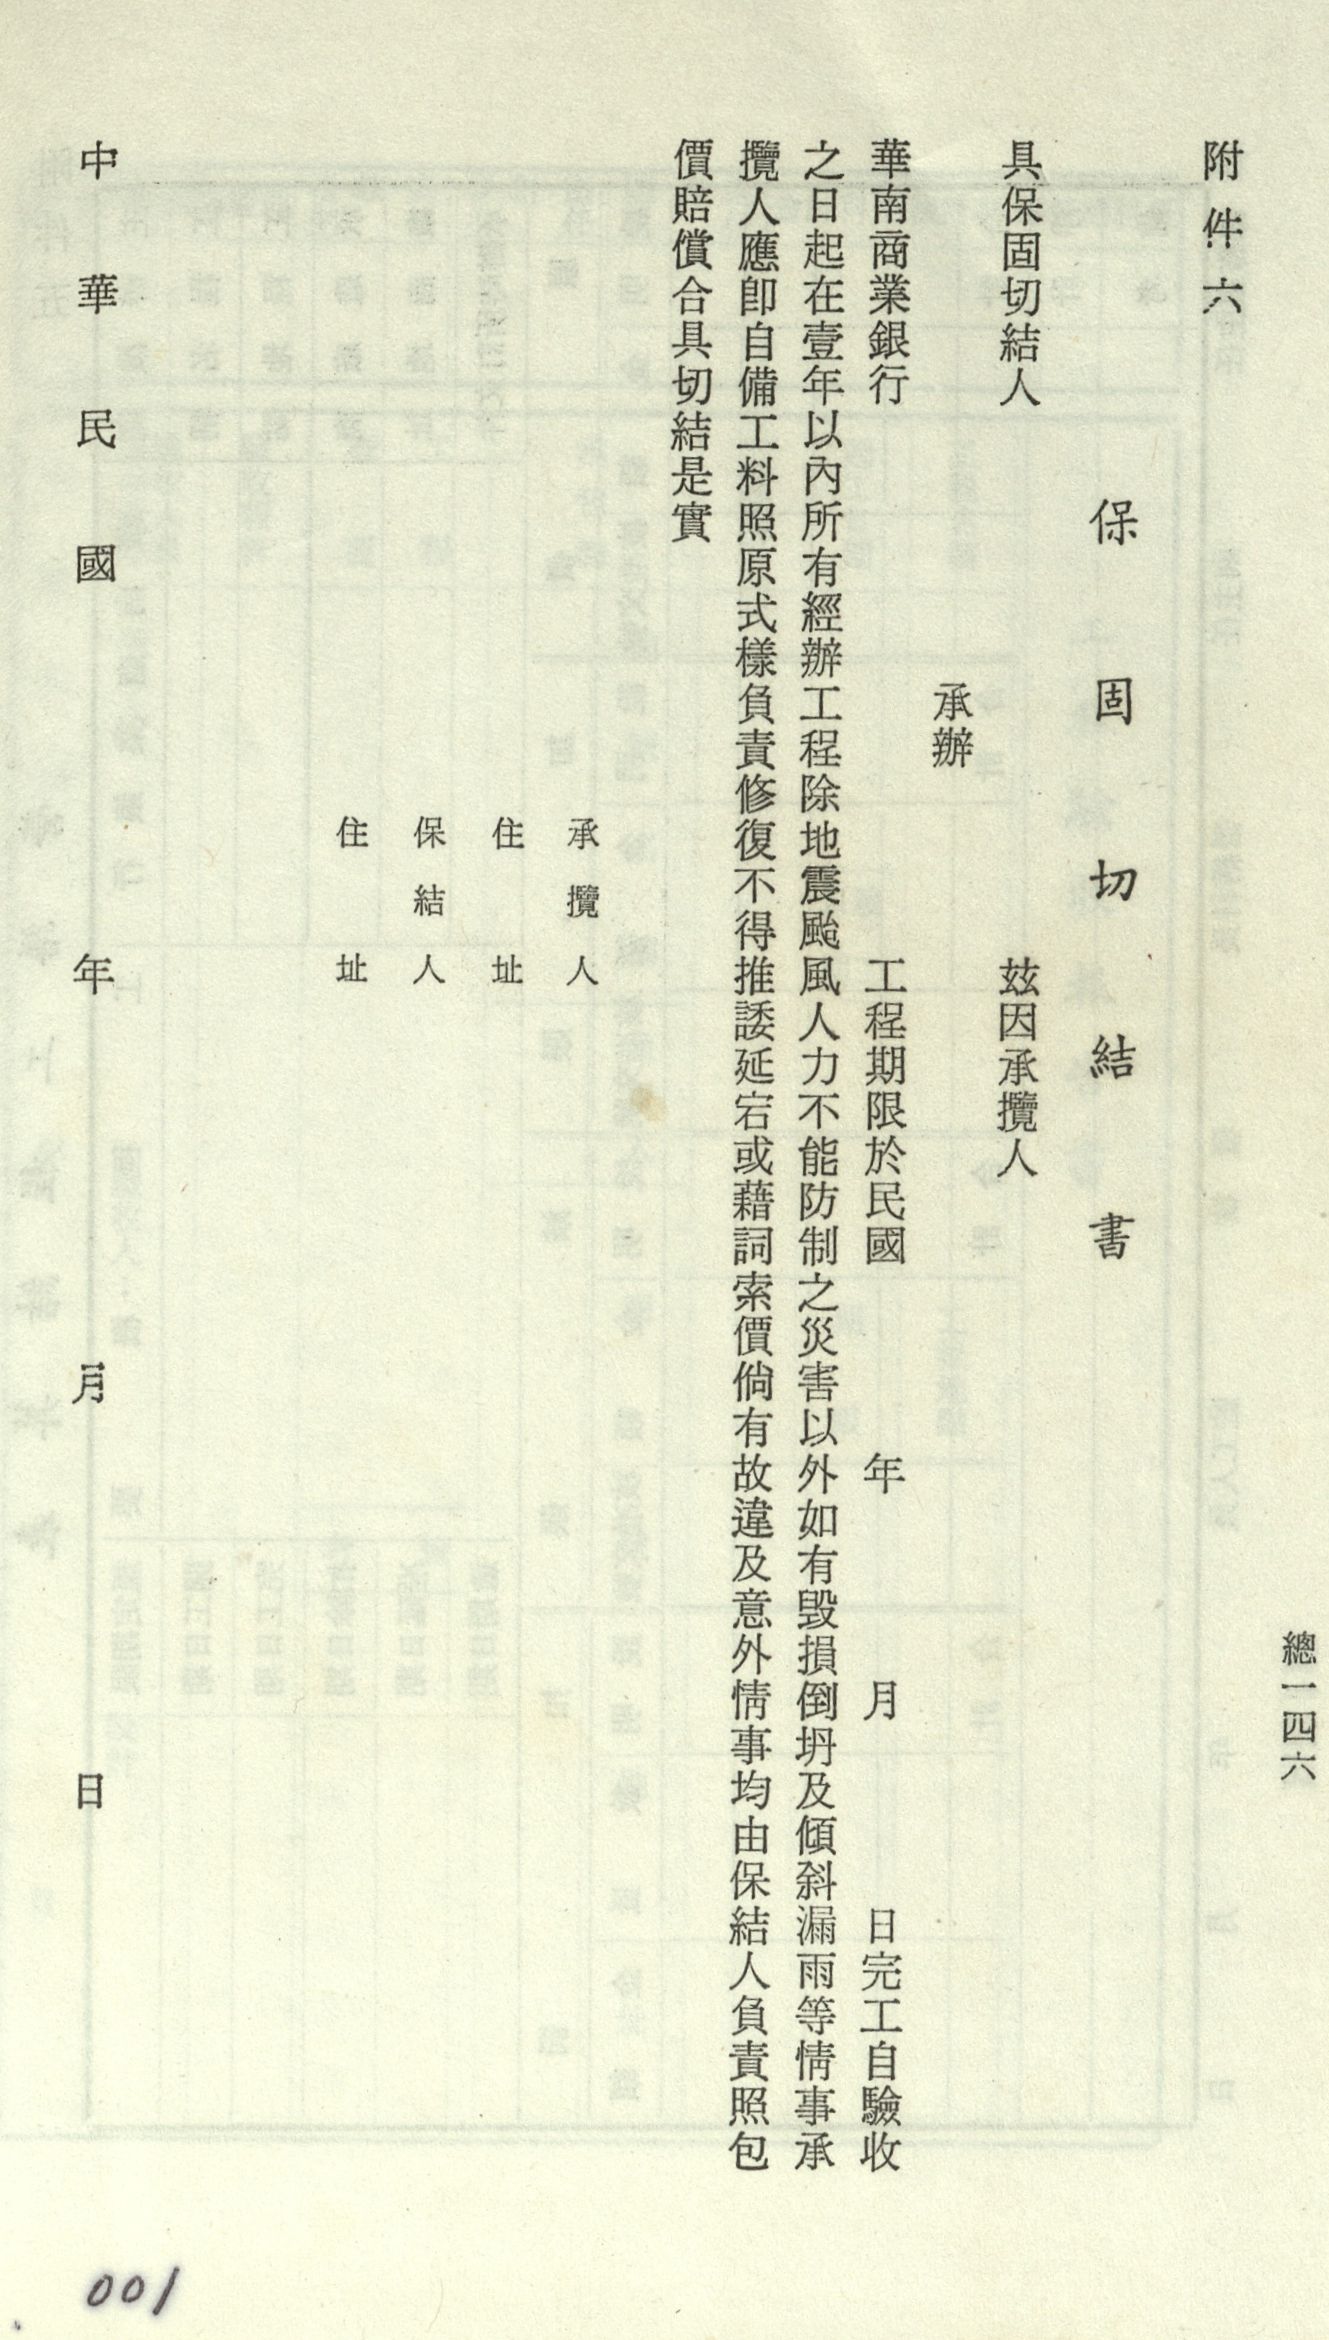 總一四六
附件六
保固切結書
具保固切結人　　　　　　　　　　　　茲因承攬人
承辦
華南商業銀行　　　　　　　　　　　　工程期限於民國　　　　年　　　　月　　　　日完工自驗收
之日起在壹年以內所有經辦工程除地震颱風人力不能防制之災害以外如有毀損倒坍及傾斜漏雨等情事承
攬人應卽自備工料照原式樣負責修復不得推諉延宕或藉詞索價倘有故違及意外情事均由保結人負責照包
價賠償合具切結是實
承攬人
住址
保結人
住址
中華民國　　　　年　　　　月　　　　日
001